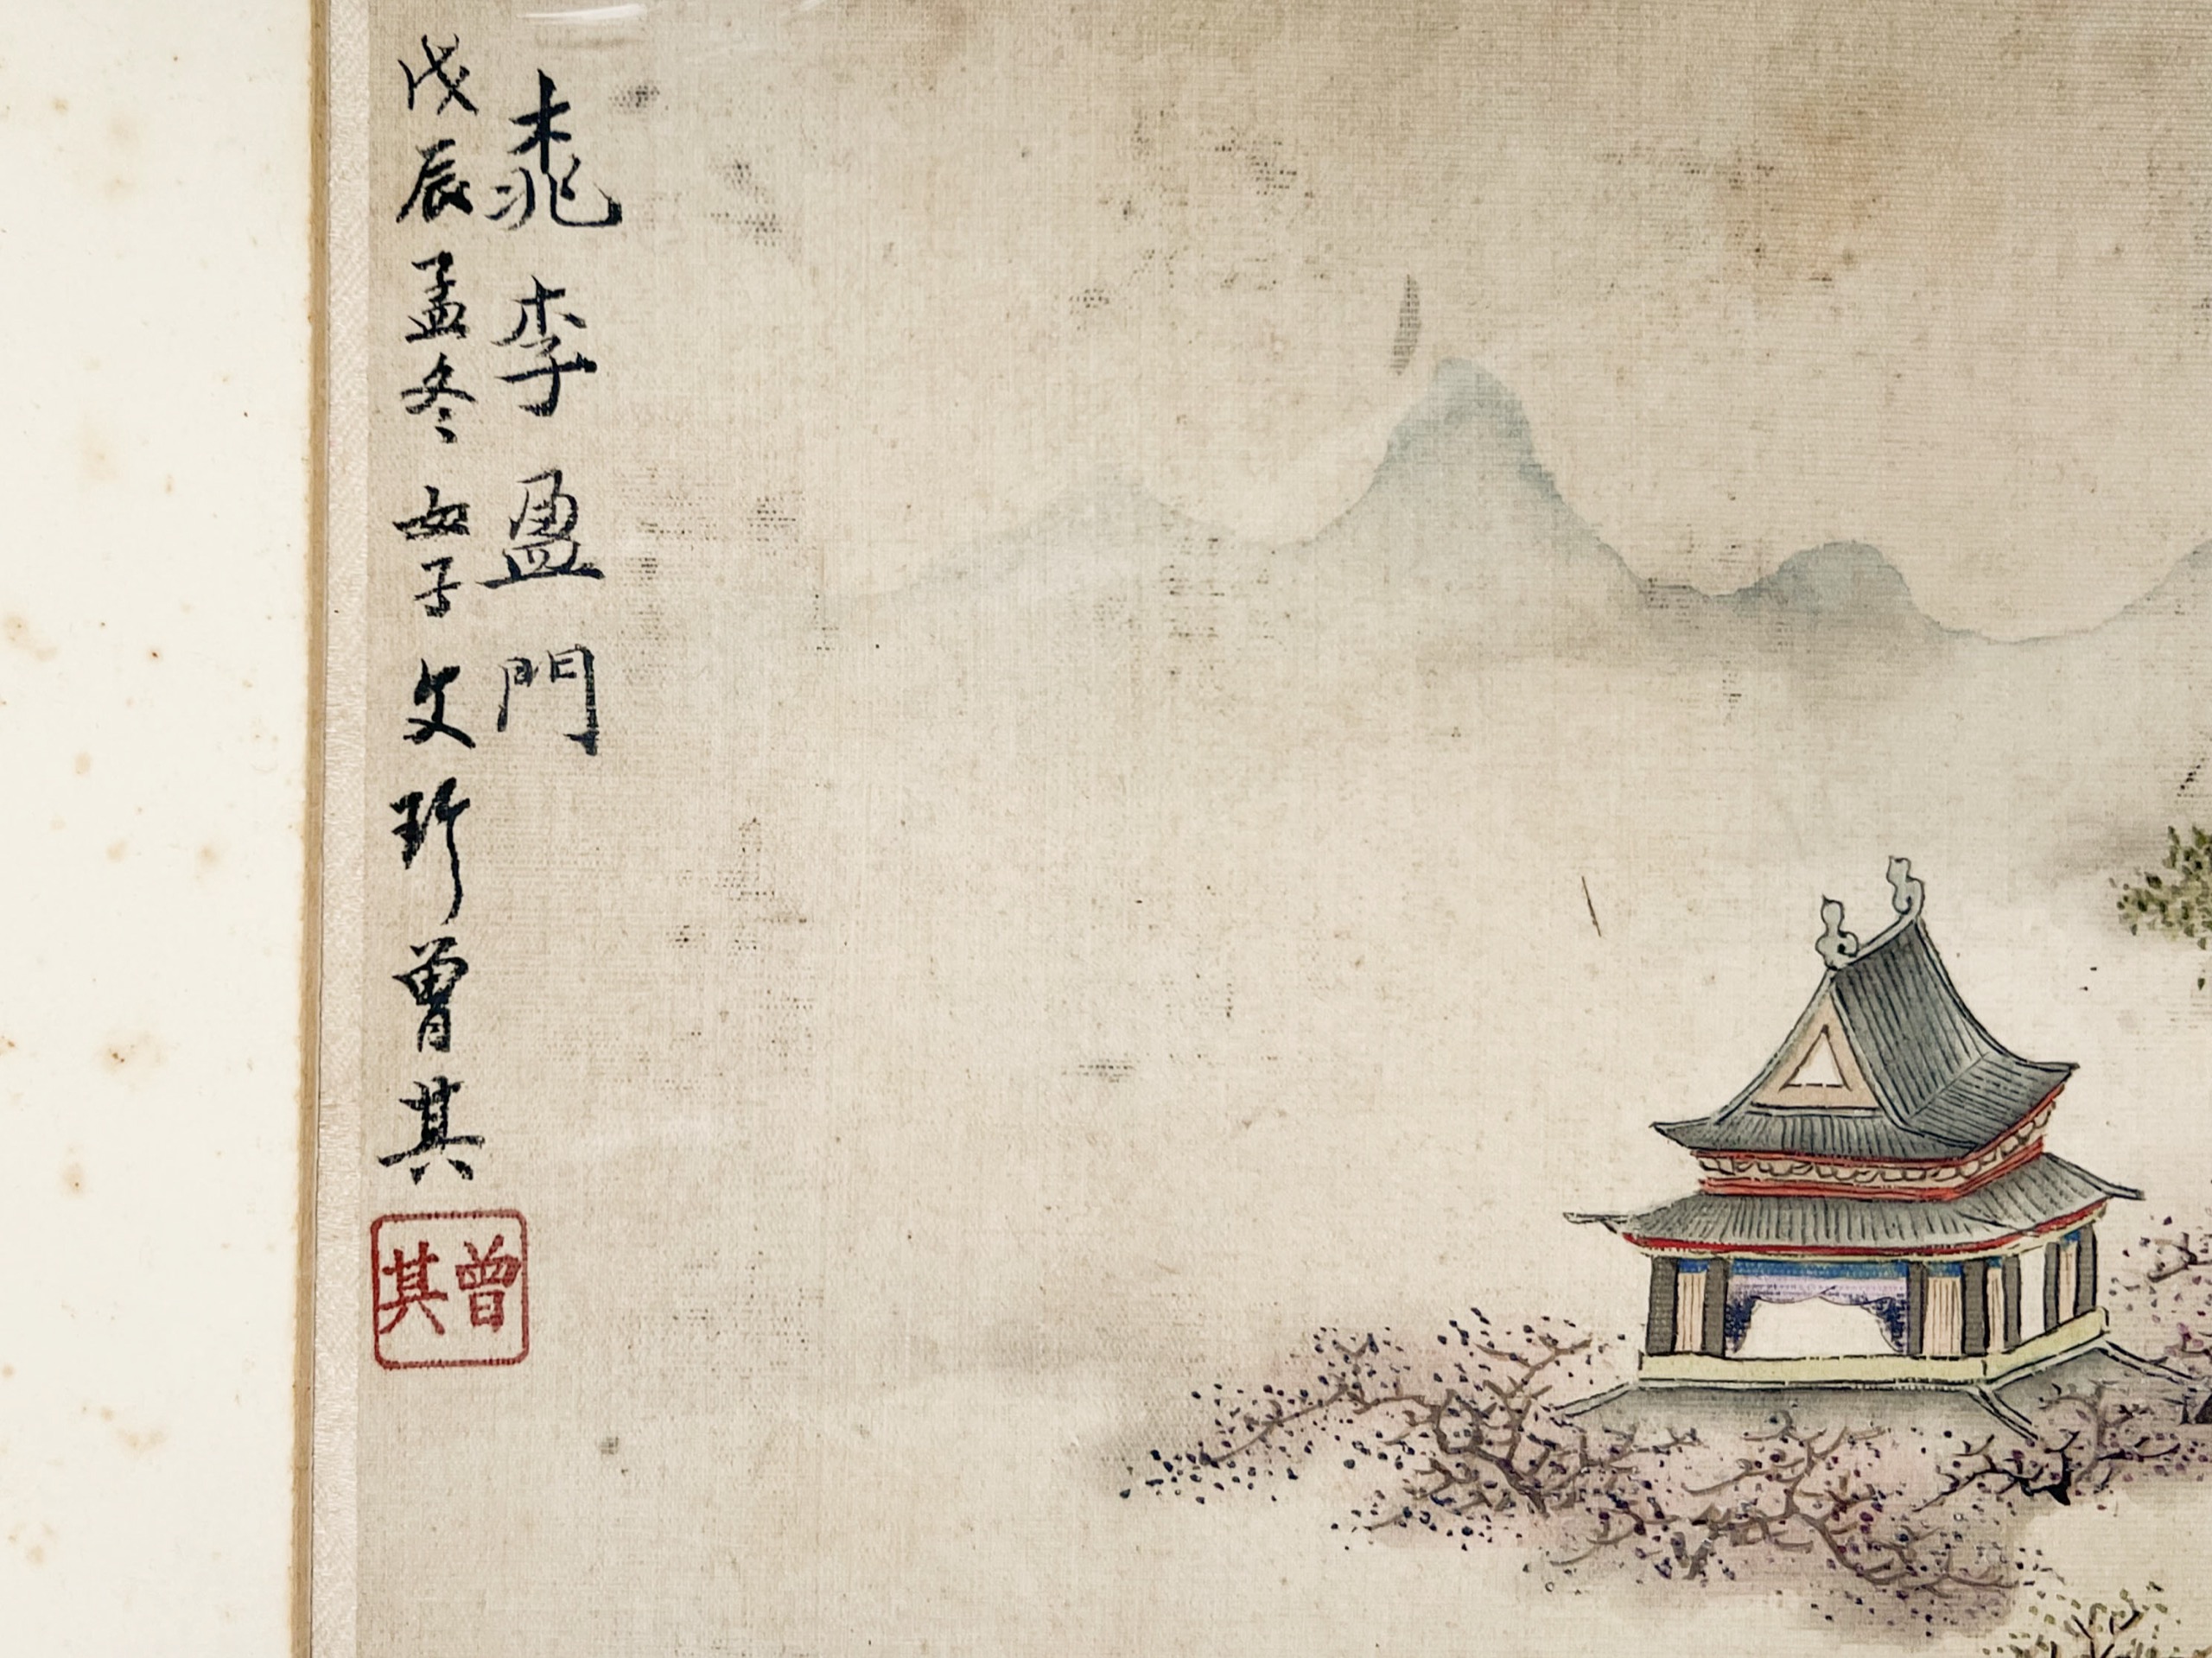 桃李盈門
戊辰孟冬女子文珍曾其
曾其